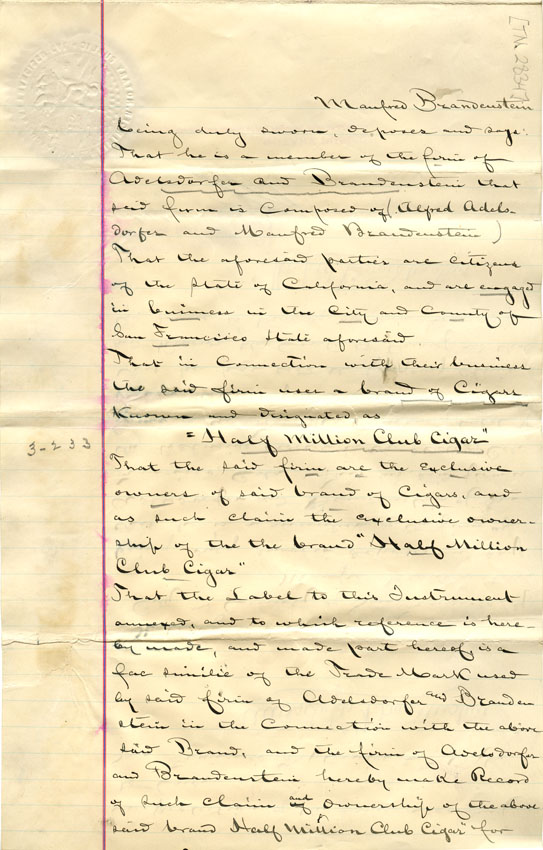 [TN. 2834]
Manfred Brandenstein
being duly sworn, deposes and says:
That he is a member of the firm of
Adelsdorfer and Brandenstein that
said firm is Composed of (Alfred Adels-
dorfer and Manfred Brandenstein)
That the aforesaid parties are Citizens
of the State of California, and are engaged
in business in the City and County of
San Francisco State aforesaid.
That in Connection with their business
the said firm uses a brand of Cigars
Known and designated as
"Half Million Club Cigar"
3-233
That the said firm are the exclusive
owners of said brand of Cigars, and
as such claim the exclusive owner-
ship of the the brand "Half Million
Club Cigar"
That the Label to this Instrument
annexed, and to which reference is here-
by made, and made part hereof, is a
fac similie of the Trade Mark used
by said firm of Adelsdorfer and Branden
stein in the Connection with the above
said Brand, and the firm of Adelsdorfer
and Brandenstein hereby make Record
of such claim and of Ownership of the above
said brand Half Million Club Cigar" for